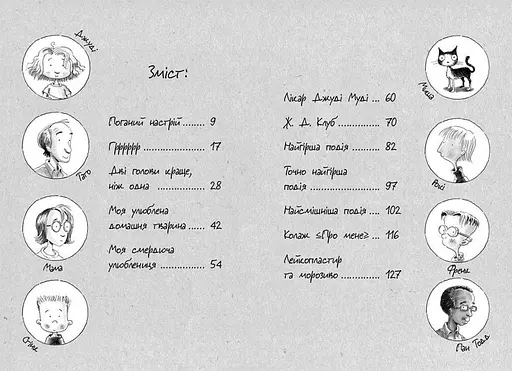 Джуді
Тато
Мама
Стінк
Зміст:
Поганий настрій........ 9
Гррррррр ............... 17
Дві голови краще,
ніж одна ............... 28
Моя улюблена
домашня тварина ..... 42
Моя смердюча
улюблениця ............. 54
Лікар Джуді Муді ... 60
Ж. Д. Клуб.............. 70
Найгірша подія ........ 82
Точно найгірша
подія .................... 97
Найсмішніша подія .... 102
Колаж «Про мене» ... 116
Лейкопластир
та морозиво............ 127
Миша
Рокі
Френк
Пан Тодд